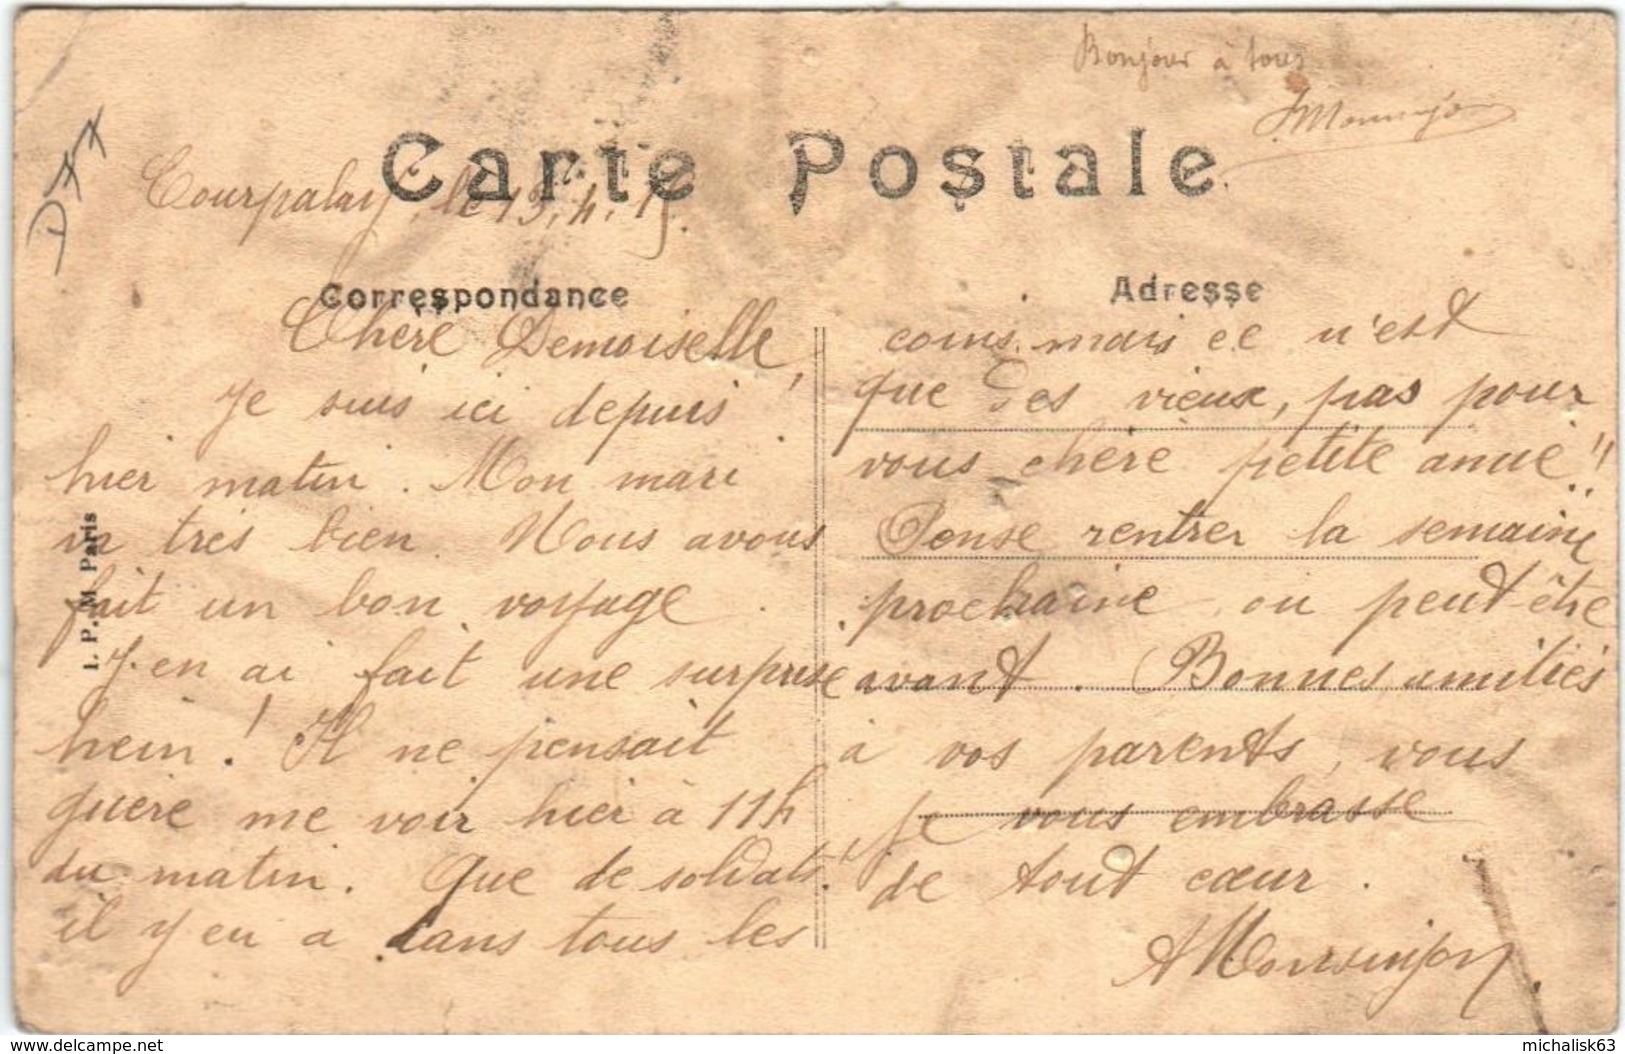 Bonjour à tous
D77
Carte Postale
Courpalay, le 13.4.15.
Correspondance
Chère Demoiselle,
Je suis ici depuis
hier matin. Mon mari
va très bien. Nous avons
fait un bon voyage.
J'en ai fait une surprise
hein! Il ne pensait
guère me voir hier à 11h
du matin. Que de soldats!
il y en a dans tous les
I. P. M. Paris
Adresse
coins. mais ce n'est
que des vieux, pas pour
vous chère petite amie!!
Pense rentrer la semaine
prochaine ou peut-être
avant. Bonnes amitiés
à vos parents, vous
Je vous embrasse
de tout cœur.
delcampe.net
michalisk63